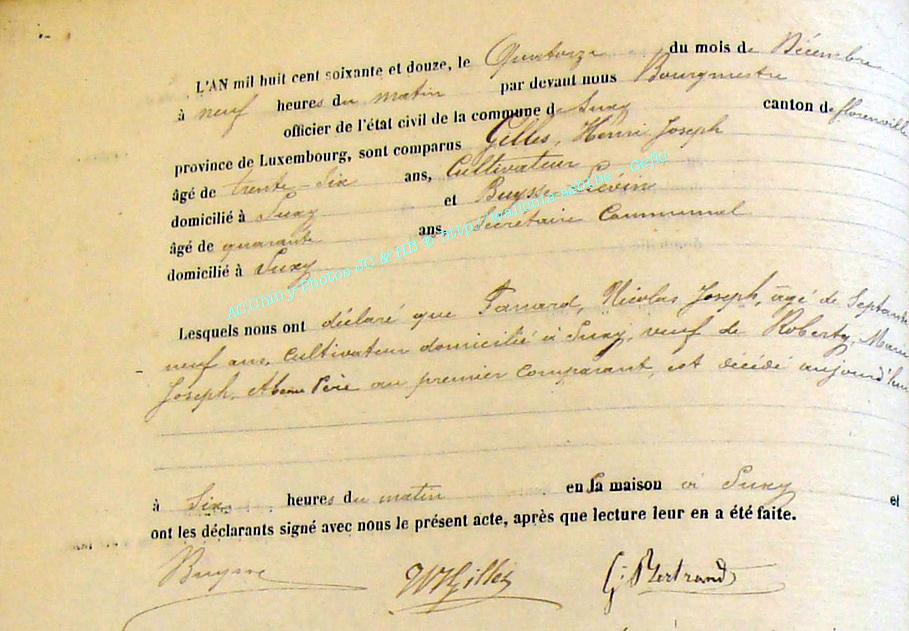 L'AN mil huit cent soixante et douze, le Quatorze du mois de Décembre
à neuf heures du matin par devant nous Bourgmestre
officier de l'état civil de la commune de Suxy canton de florenville
province de Luxembourg, sont comparus Gilles, Henri Joseph
âgé de trente-six ans, Cultivateur
domicilié à Suxy et Buysse Liévin
âgé de quarante ans, Secrétaire Communal
domicilié à Suxy
AGChiny-Photos JC & HB © http://wallonia-asbl.be - GeGu
Lesquels nous ont déclaré que Nicolas Joseph, âgé de Septante
neuf ans, Cultivateur domicilié à Suxy, veuf de Roberty, Marie
Joseph, et beau Père au premier comparant, est décédé aujourd'hui
à Six heures du matin en sa maison à Suxy et
ont les déclarants signé avec nous le présent acte, après que lecture leur en a été faite.
Buysse HGilles G. Bertrand